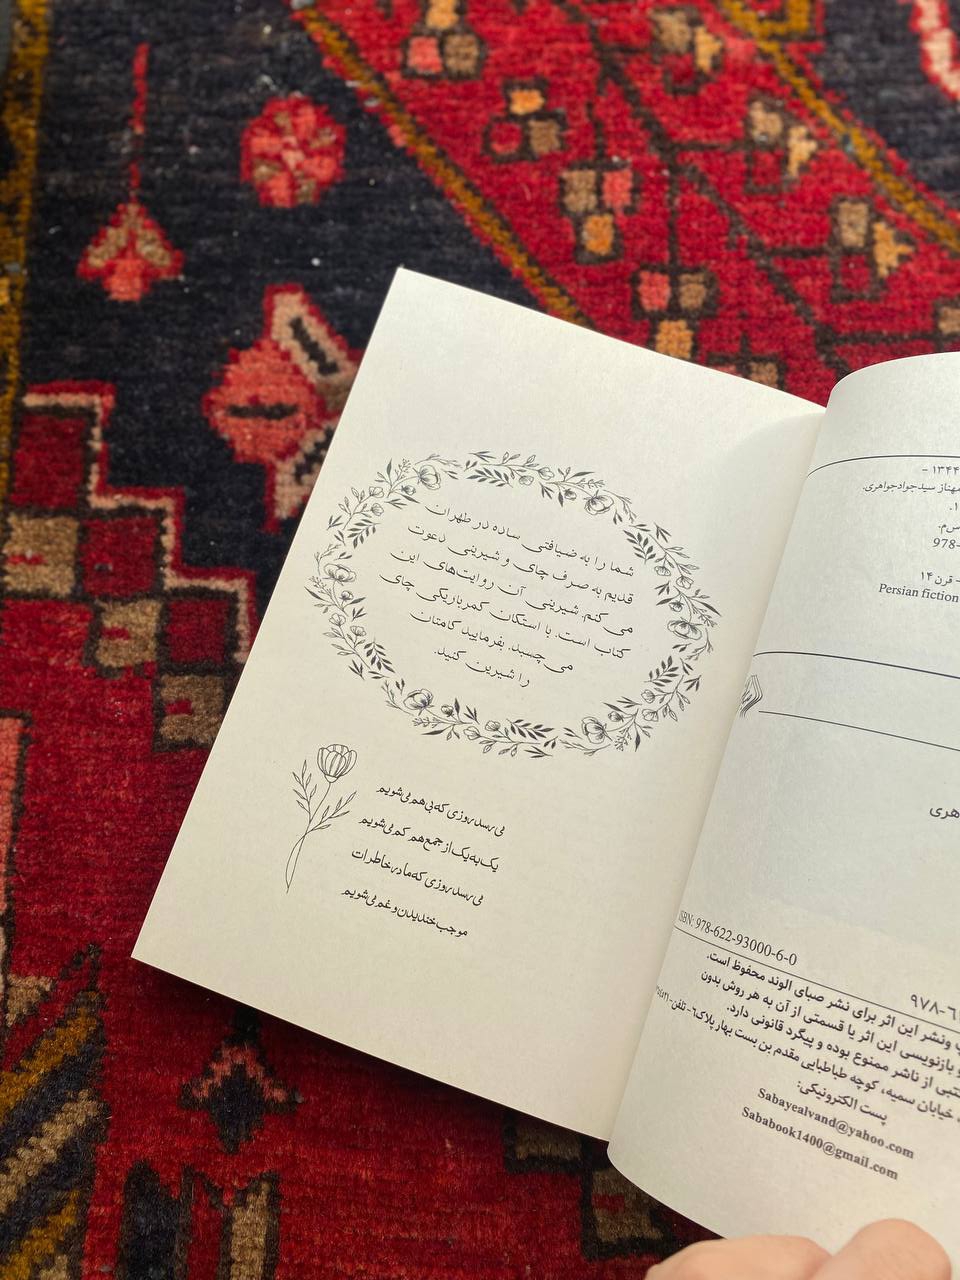 شما را به ضیافتی ساده در طهران
قدیم به صرف چای و شیرینی دعوت
می کنم. شیرینی آن روایت‌های این
کتاب است. با استکان کمرباریکی چای
می چسبد. بفرمایید کامتان
را شیرین کنید.
می‌رسد روزی که بی هم می‌شویم
یک به یک از جمع هم کم می‌شویم
می‌رسد روزی که ما در خاطرات
موجب خندیدن و غم می‌شویم
۱۳۴۴ -
مهناز سیدجواد‌جواهری.
س‌م.
978-
- قرن ۱۴
Persian fiction
هری
ISBN: 978-622-93000-6-0
۹۷۸-۶
ونشر این اثر برای نشر صبای الوند محفوظ است.
و بازنویسی این اثر یا قسمتی از آن به هر روش بدون
کتبی از ناشر ممنوع بوده و پیگرد قانونی دارد.
خیابان سمیه، کوچه طباطبایی مقدم بن بست بهار پلاک۶- تلفن
پست الکترونیکی:
Sabayealvand@yahoo.com
Sababook1400@gmail.com